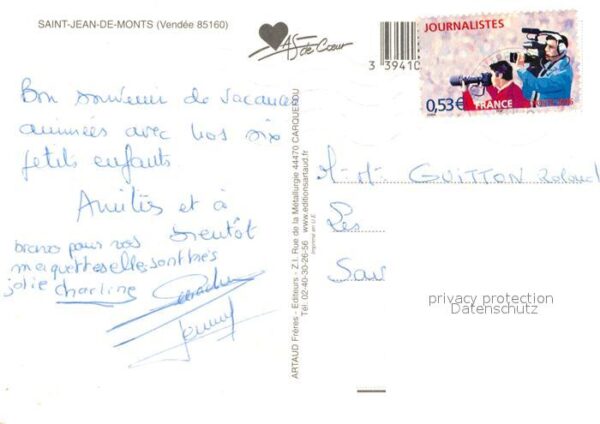 SAINT-JEAN-DE-MONTS (Vendée 85160)
AS de Cœur
3 39410
JOURNALISTES
0,53€ FRANCE
Bon souvenir de vacances
animées avec nos six
petits enfants.
Amitiés et à
bientôt
bravo pour vos
maquettes elles sont très
jolie charline
ARTAUD Frères - Editeurs - Z.I. Rue de la Métallurgie 44470 CARQUEFOU
Tél. 02-40-30-26-56 www.editionsartaud.fr
Imprimé en U.E.
M. Mr GUITTON Roland
Les
Sau
privacy protection
Datenschutz